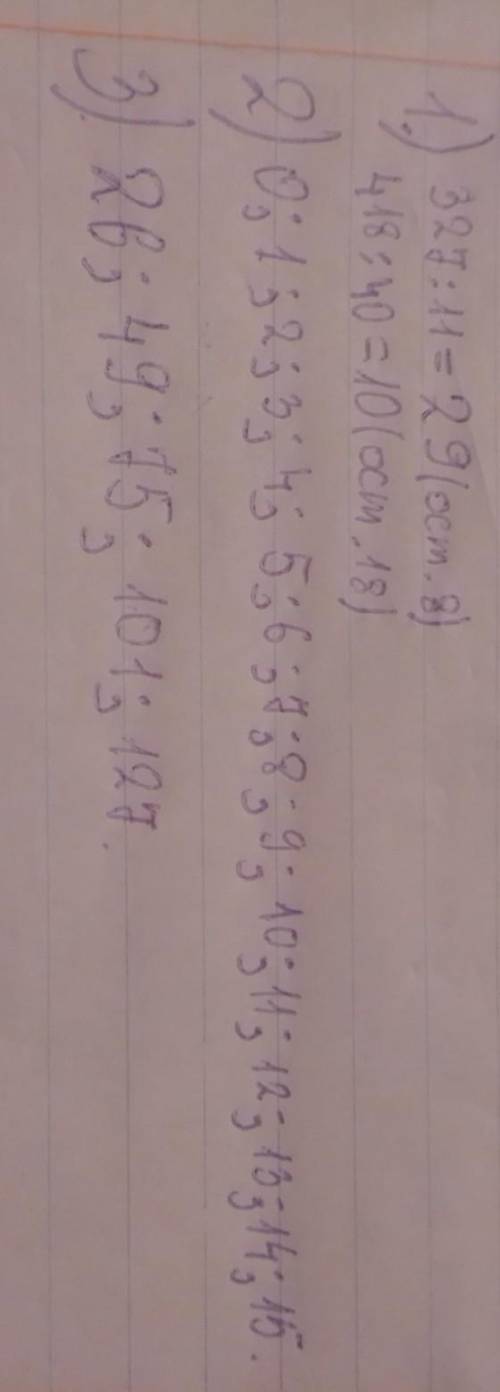 1.) 327:11=29(ост.8)
418:40=10(ост.18)
2) 0; 1; 2; 3; 4; 5; 6; 7; 8; 9; 10; 11; 12; 13; 14; 15.
3) 26; 49; 75; 101; 127.